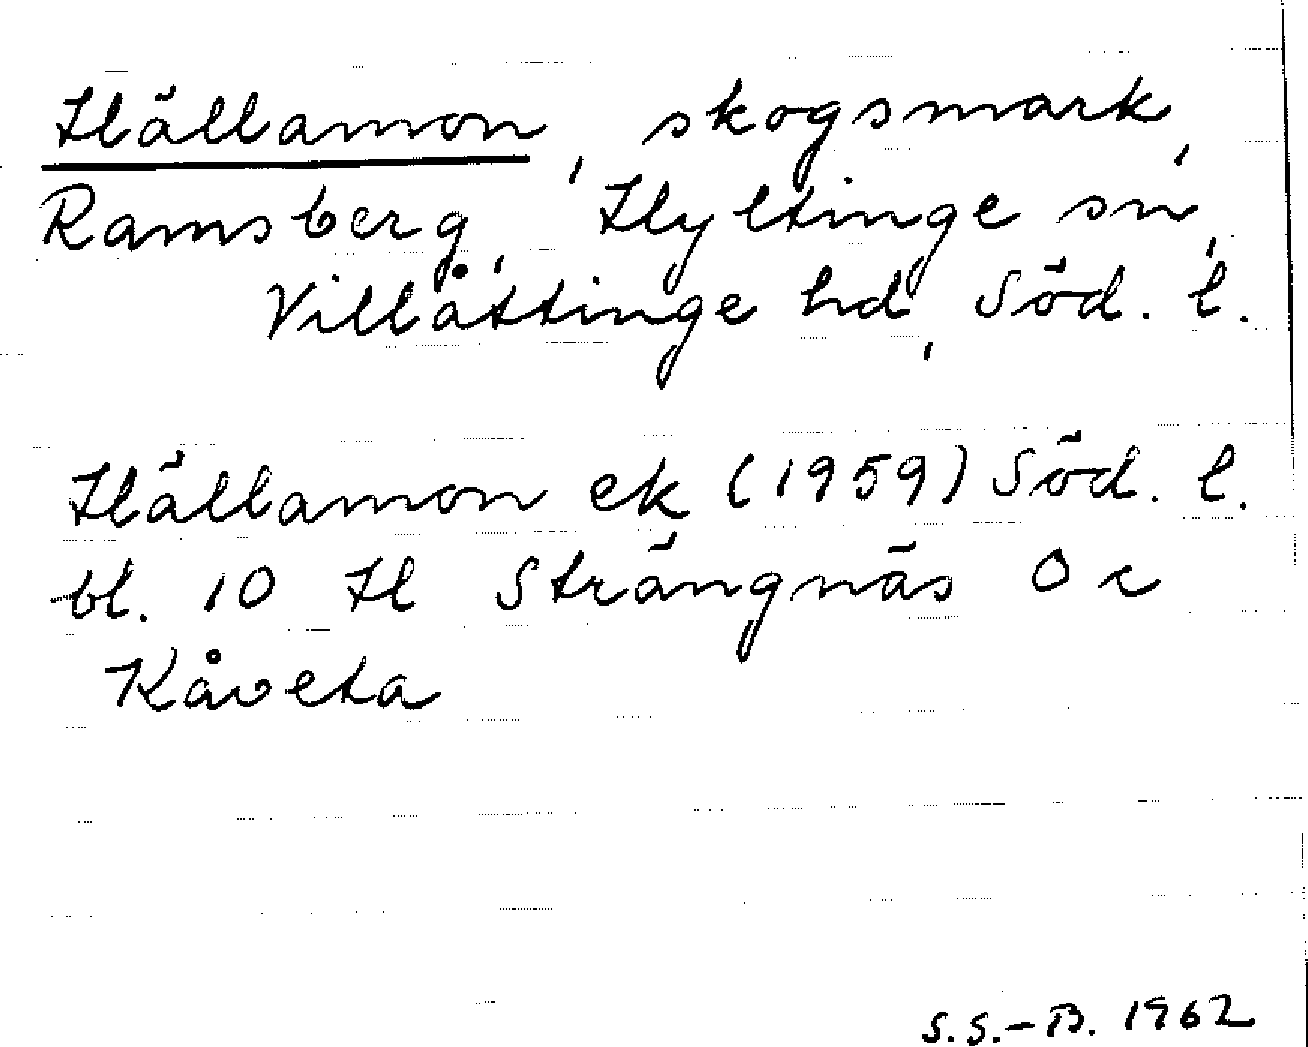 Hällamon, skogsmark,
Ramsberg, Hyltinge sn,
Villåttinge hd, Söd. l.
Hällamon ek (1959) Söd. l.
bl. 10 H Strängnäs 0 c
Kåveta
S.S.-B. 1962